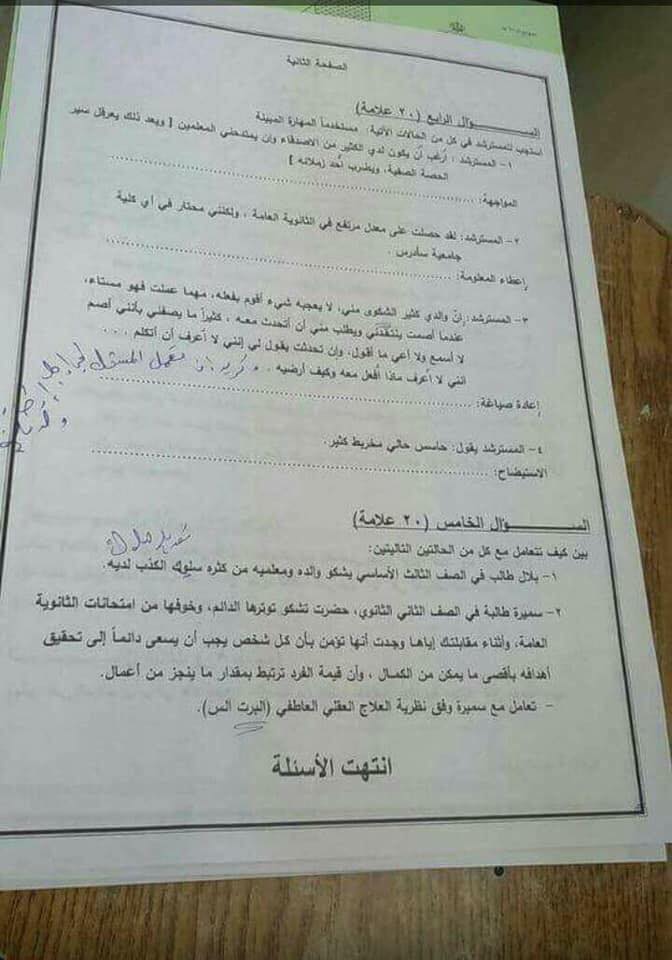 الصفحة الثانية
الســـــؤال الرابع (٢٠ علامة)
استجب للمسترشد في كل من الحالات الآتية: مستخدماً المهارة المبينة
١- المسترشد : أرغب أن يكون لدي الكثير من الاصدقاء وان يمتدحني المعلمين [ وبعد ذلك يعرقل سير
الحصة الصفية، ويضرب أحد زملائه ]
المواجهة: ........................................
٢- المسترشد: لقد حصلت على معدل مرتفع في الثانوية العامة ، ولكنني محتار في أي كلية
جامعية سأدرس .
إعطاء المعلومة: ........................................
٣- المسترشد: إنّ والدي كثير الشكوى مني، لا يعجبه شيء أقوم بفعله، مهما عملت فهو مستاء،
عندما أصمت ينتقدني ويطلب مني أن أتحدث معه ، كثيراً ما يصفني بأنني أصم
لا أسمع ولا أعي ما أقول، وإن تحدثت يقول لي إنني لا أعرف أن أتكلم . . .
انني لا أعرف ماذا أفعل معه وكيف أرضيه .
إعادة صياغة: ........................................
٤- المسترشد يقول: حاسس حالي مخربط كثير.
الاستيضاح: ........................................
الســـــؤال الخامس (٢٠ علامة)
بين كيف تتعامل مع كل من الحالتين التاليتين:
١- بلال طالب في الصف الثالث الأساسي يشكو والده ومعلميه من كثره سلوك الكذب لديه.
٢- سميرة طالبة في الصف الثاني الثانوي، حضرت تشكو توترها الدائم، وخوفها من امتحانات الثانوية
العامة، وأثناء مقابلتك إياها وجدت أنها تؤمن بأن كل شخص يجب أن يسعى دائماً إلى تحقيق
أهدافه بأقصى ما يمكن من الكمال ، وأن قيمة الفرد ترتبط بمقدار ما ينجز من أعمال.
- تعامل مع سميرة وفق نظرية العلاج العقلي العاطفي (البرت الس).
انتهت الأسئلة